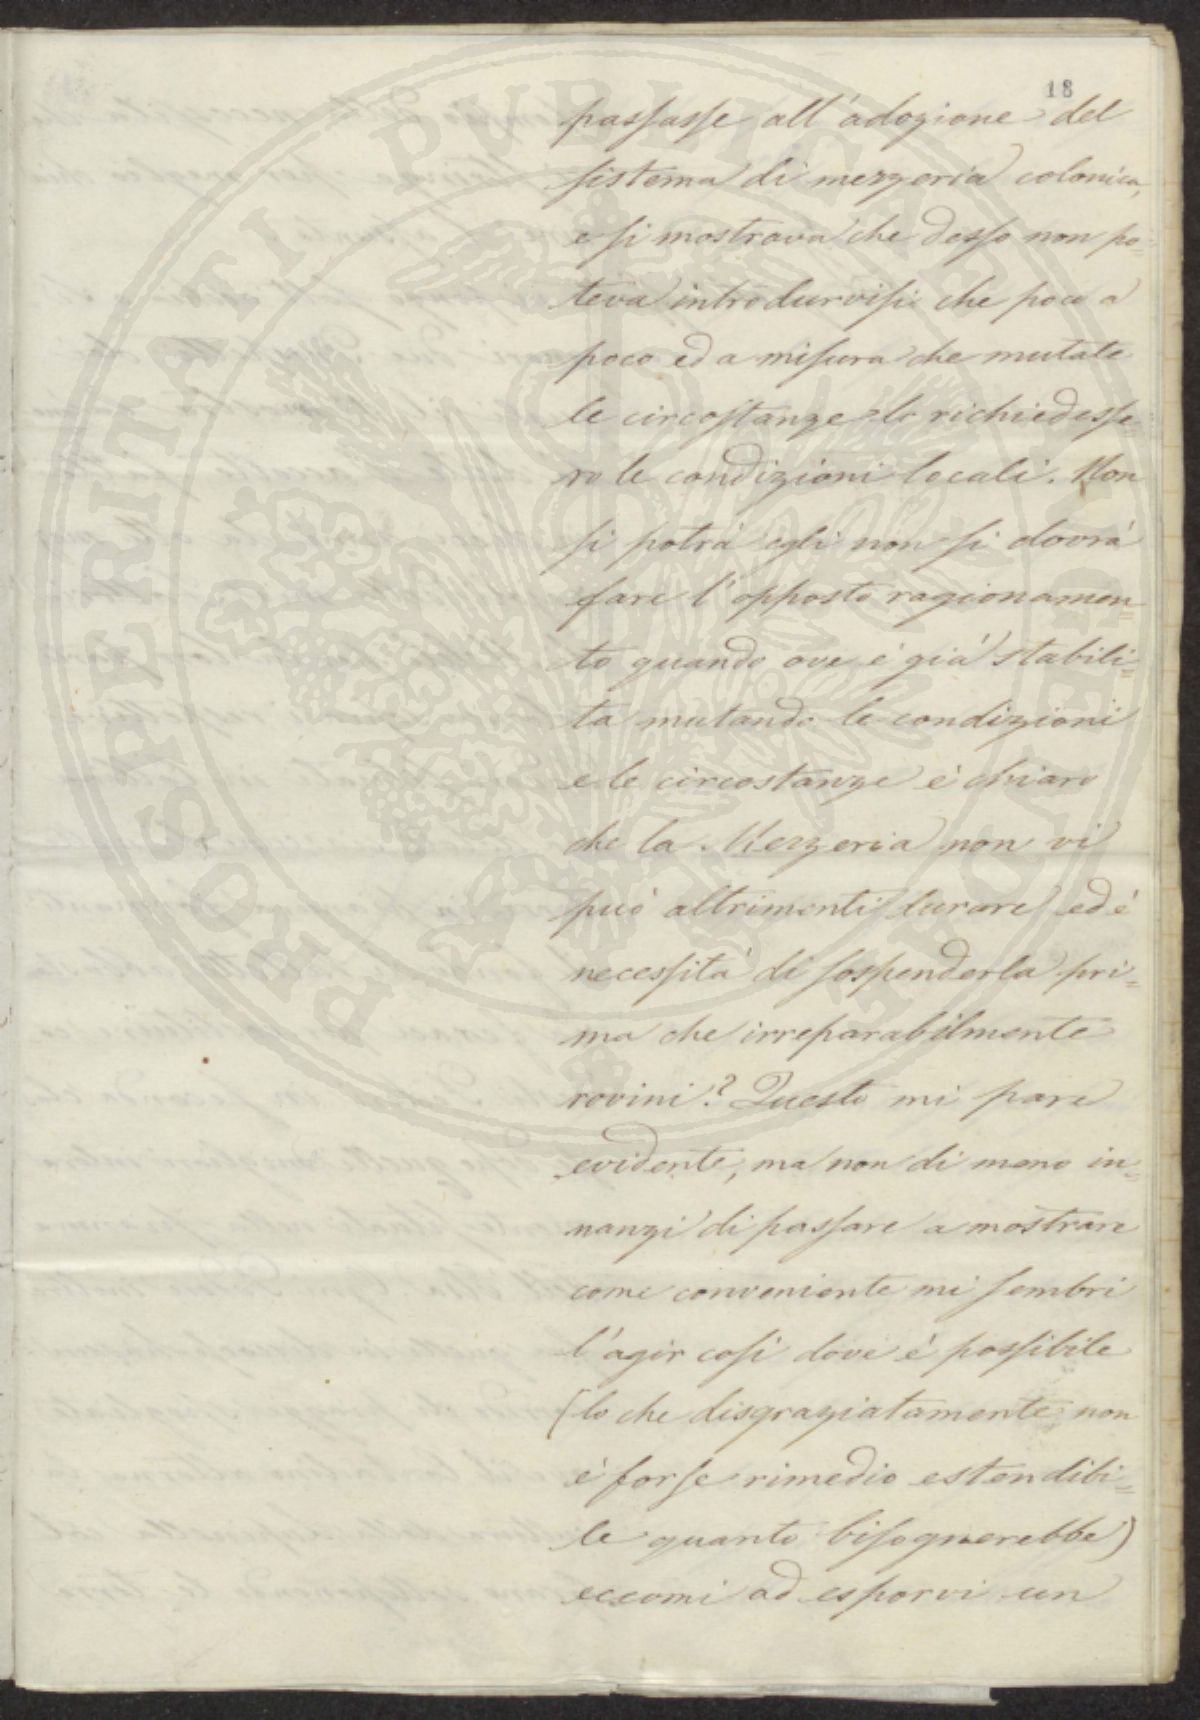 18
passasse all'adozione del
sistema di mezzeria colonica,
e si mostrava che desso non po=
teva introdurvisi che poco a
poco ed a misura che mutate
le circostanze lo richiedesse=
ro le condizioni locali. Non
si potrà egli non si dovrà
fare l'opposto ragionamen=
to quando ove è già stabili=
ta mutando le condizioni
e le circostanze è chiaro
che la Mezzeria non vi
può altrimenti durare ed è
necessità di sospenderla pri=
ma che irreparabilmente
rovini? Questo mi pare
evidente, ma non di meno in=
nanzi di passare a mostrare
come conveniente mi sembri
l'agir così dove è possibile
(lo che disgraziatamente non
è forse rimedio estendibi=
le quanto bisognerebbe)
eccomi ad esporvi un
PROSPERITATI PUBLICAE AUGENDAE